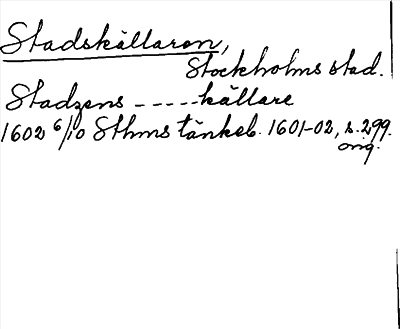 Stadskällaren,
Stockholms stad.
Stadzens - - - - - källare
1602 6/10 Sthms tänkeb. 1601-02, s. 299.
orig.